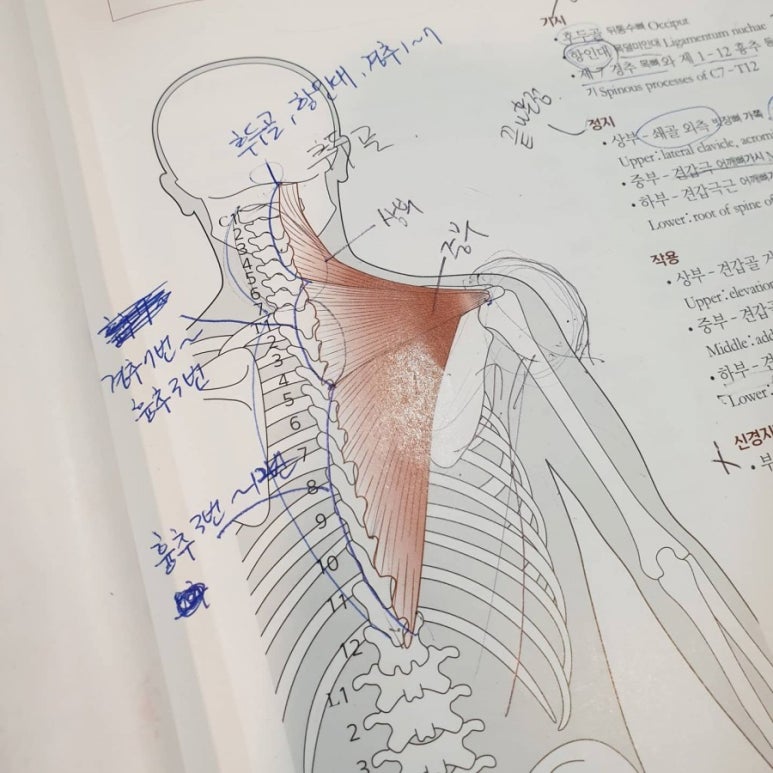 기시
• 후두골 뒤통수뼈 Occiput
• 항인대 목덜미인대 Ligamentum nuchae
• 제7 경추 목뼈와 제 1-12 흉추 등
기 Spinous processes of C7-T12
정지
• 상부 - 쇄골 외측 빗장뼈 가쪽
Upper: lateral clavicle, acrom
• 중부 - 견갑극 어깨뼈가시
• 하부 - 견갑극근 어깨뼈가
Lower: root of spine of
작용
• 상부 - 견갑골
Upper: elevation
• 중부 - 견갑
Middle: add
• 하부 - 견
Lower:
신경지
• 부
후두골, 항인대, 경추1~7
후두골
상부
중부
C1
2
3
4
5
6
7
T1
2
3
4
5
6
7
8
9
10
11
12
L1
2
3
경추7번~
흉추3번
흉추3번~12번